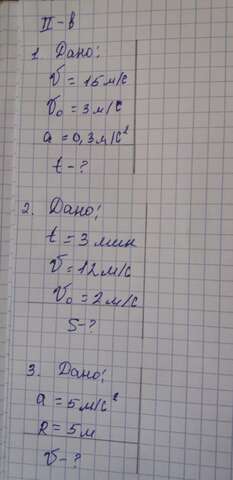 II-в
1. Дано:
V = 15 м/с
V₀ = 3 м/с
a = 0,3 м/с²
t - ?
2. Дано:
t = 3 мин
V = 12 м/с
V₀ = 2 м/с
S - ?
3. Дано:
a = 5 м/с²
R = 5 м
V - ?